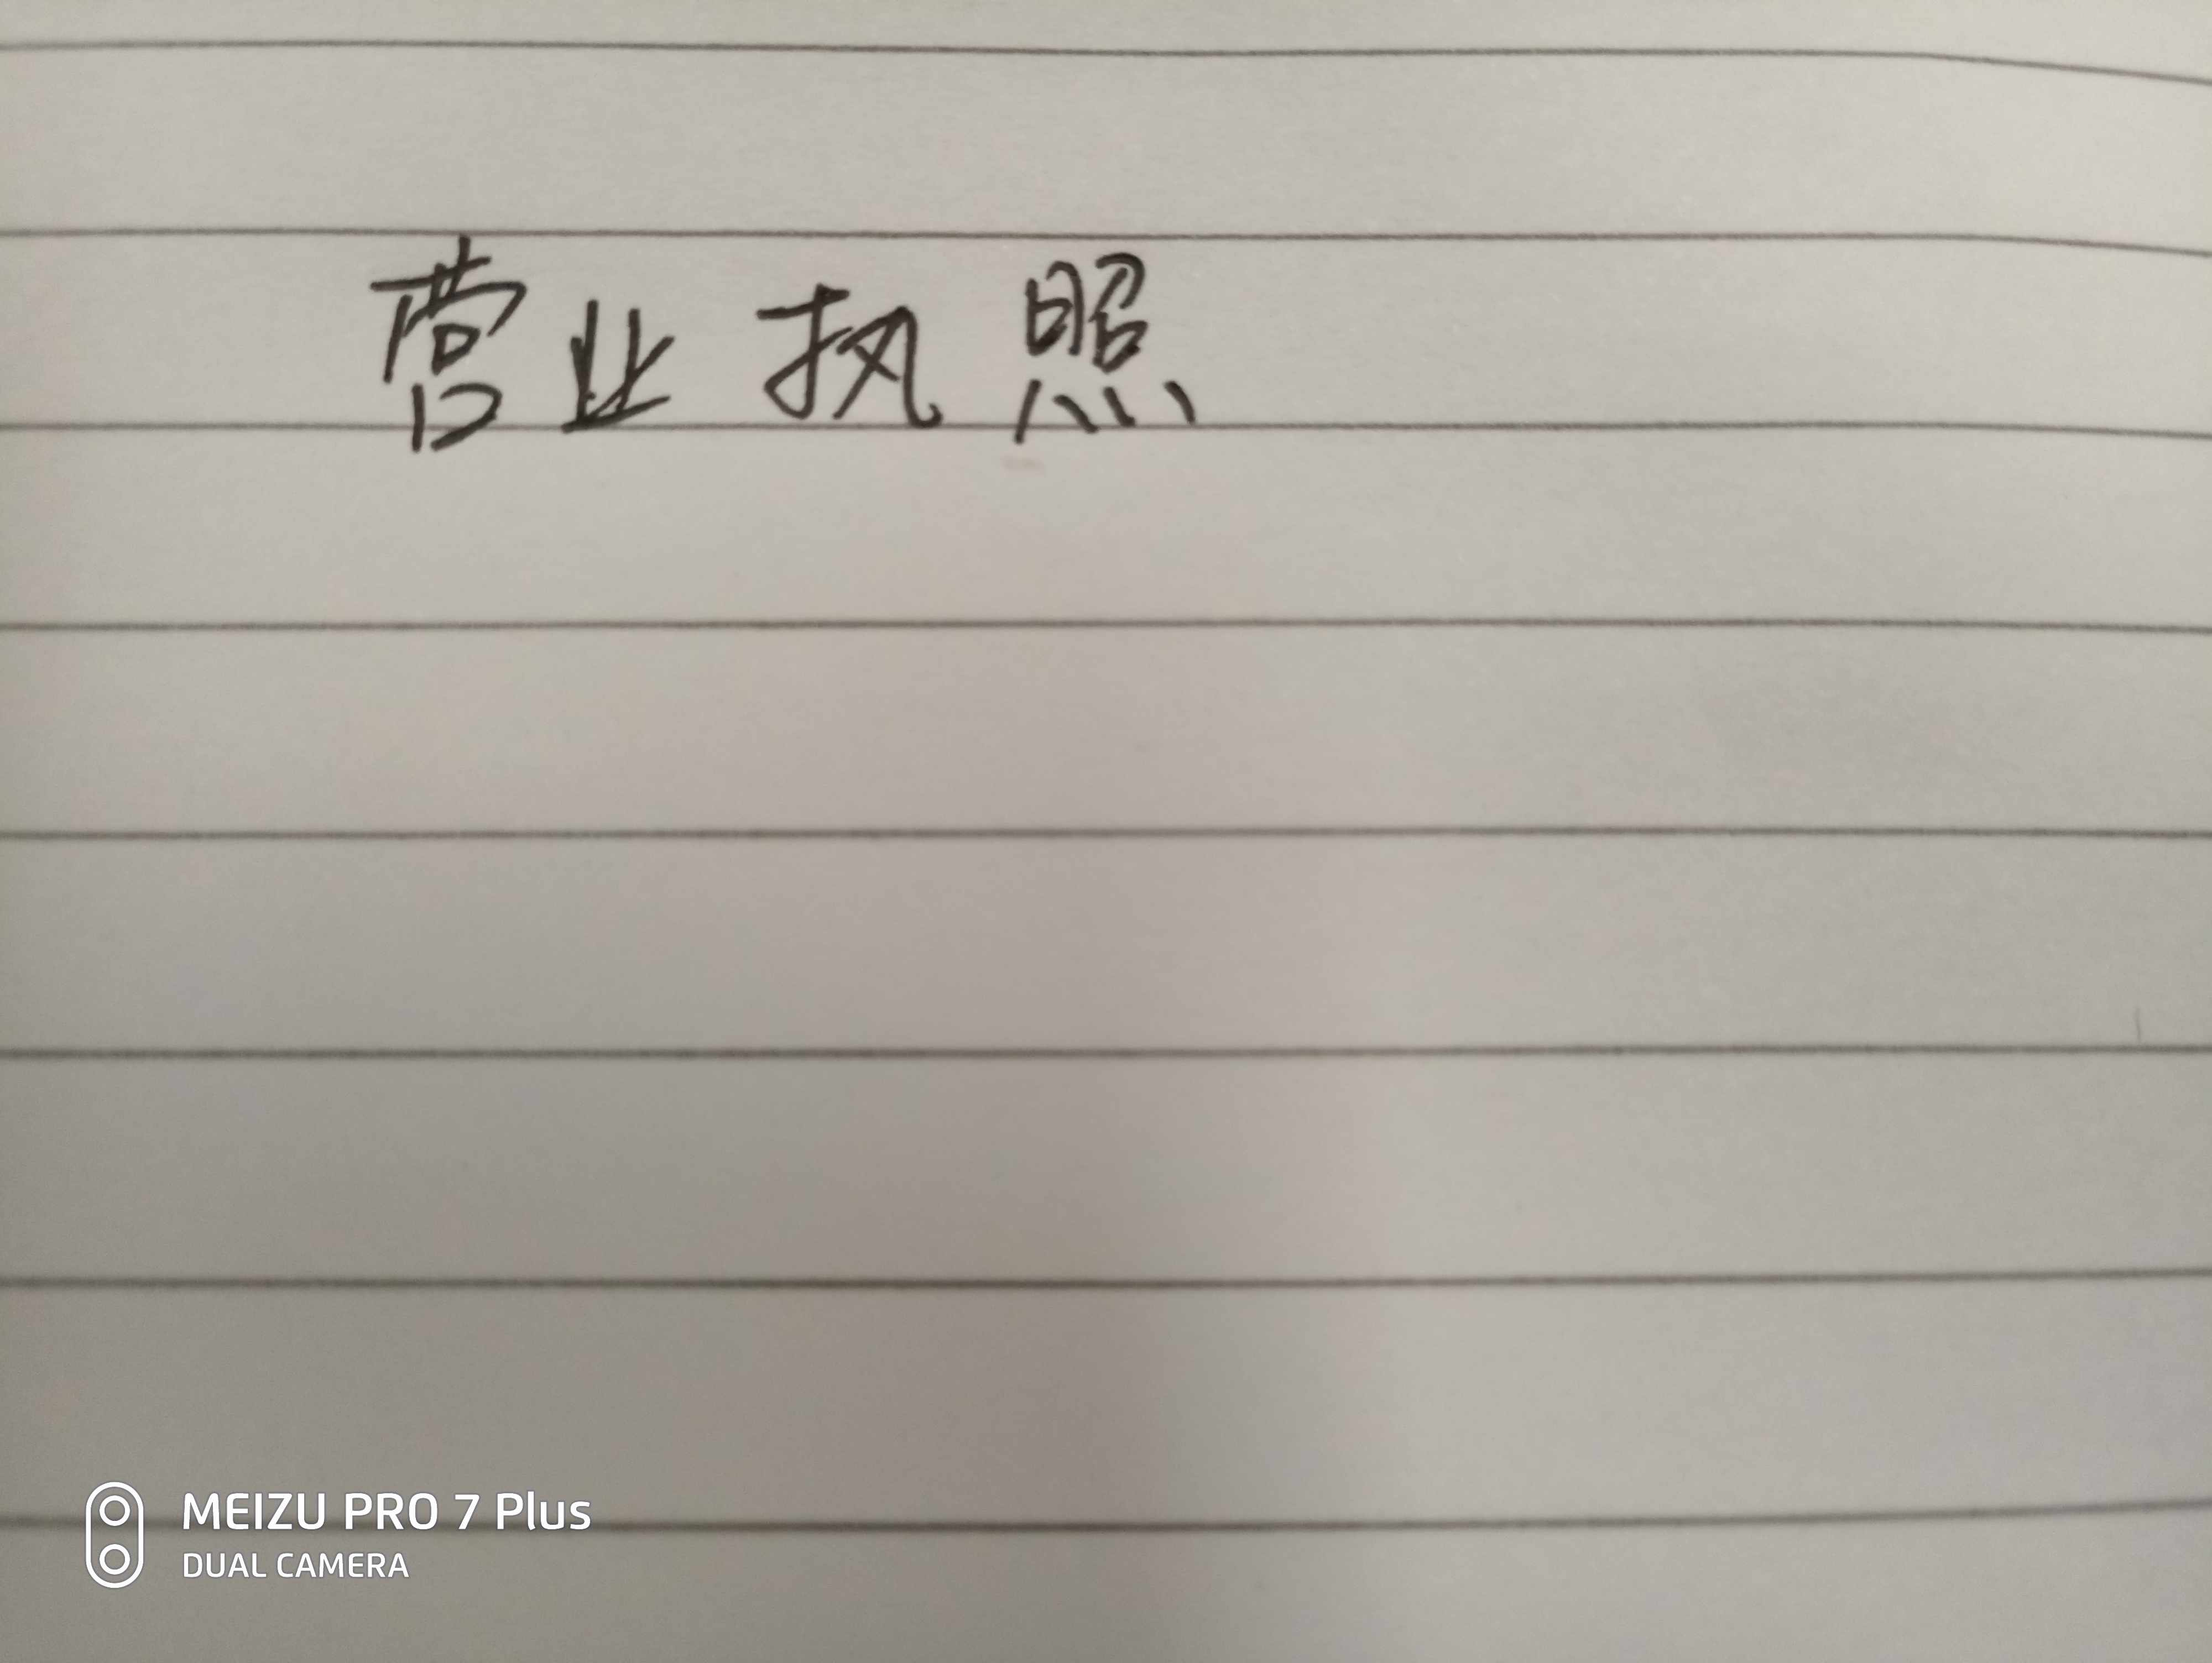 营业执照
MEIZU PRO 7 Plus
DUAL CAMERA